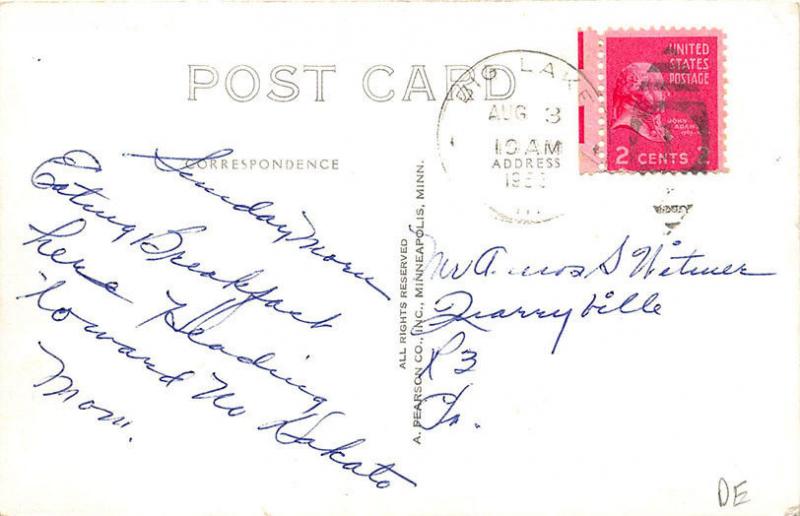 POST CARD
CORRESPONDENCE
Sunday Morn
Eating Breakfast
here Heading
toward No Dakato
Mom.
ALL RIGHTS RESERVED
A. PEARSON CO., INC., MINNEAPOLIS, MINN.
LAKE
AUG 3
10 AM
ADDRESS
UNITED
STATES
POSTAGE
JOHN
ADAMS
2 CENTS 2
Mr Amos S Witmer
Quarryville
R3
Pa.
DE